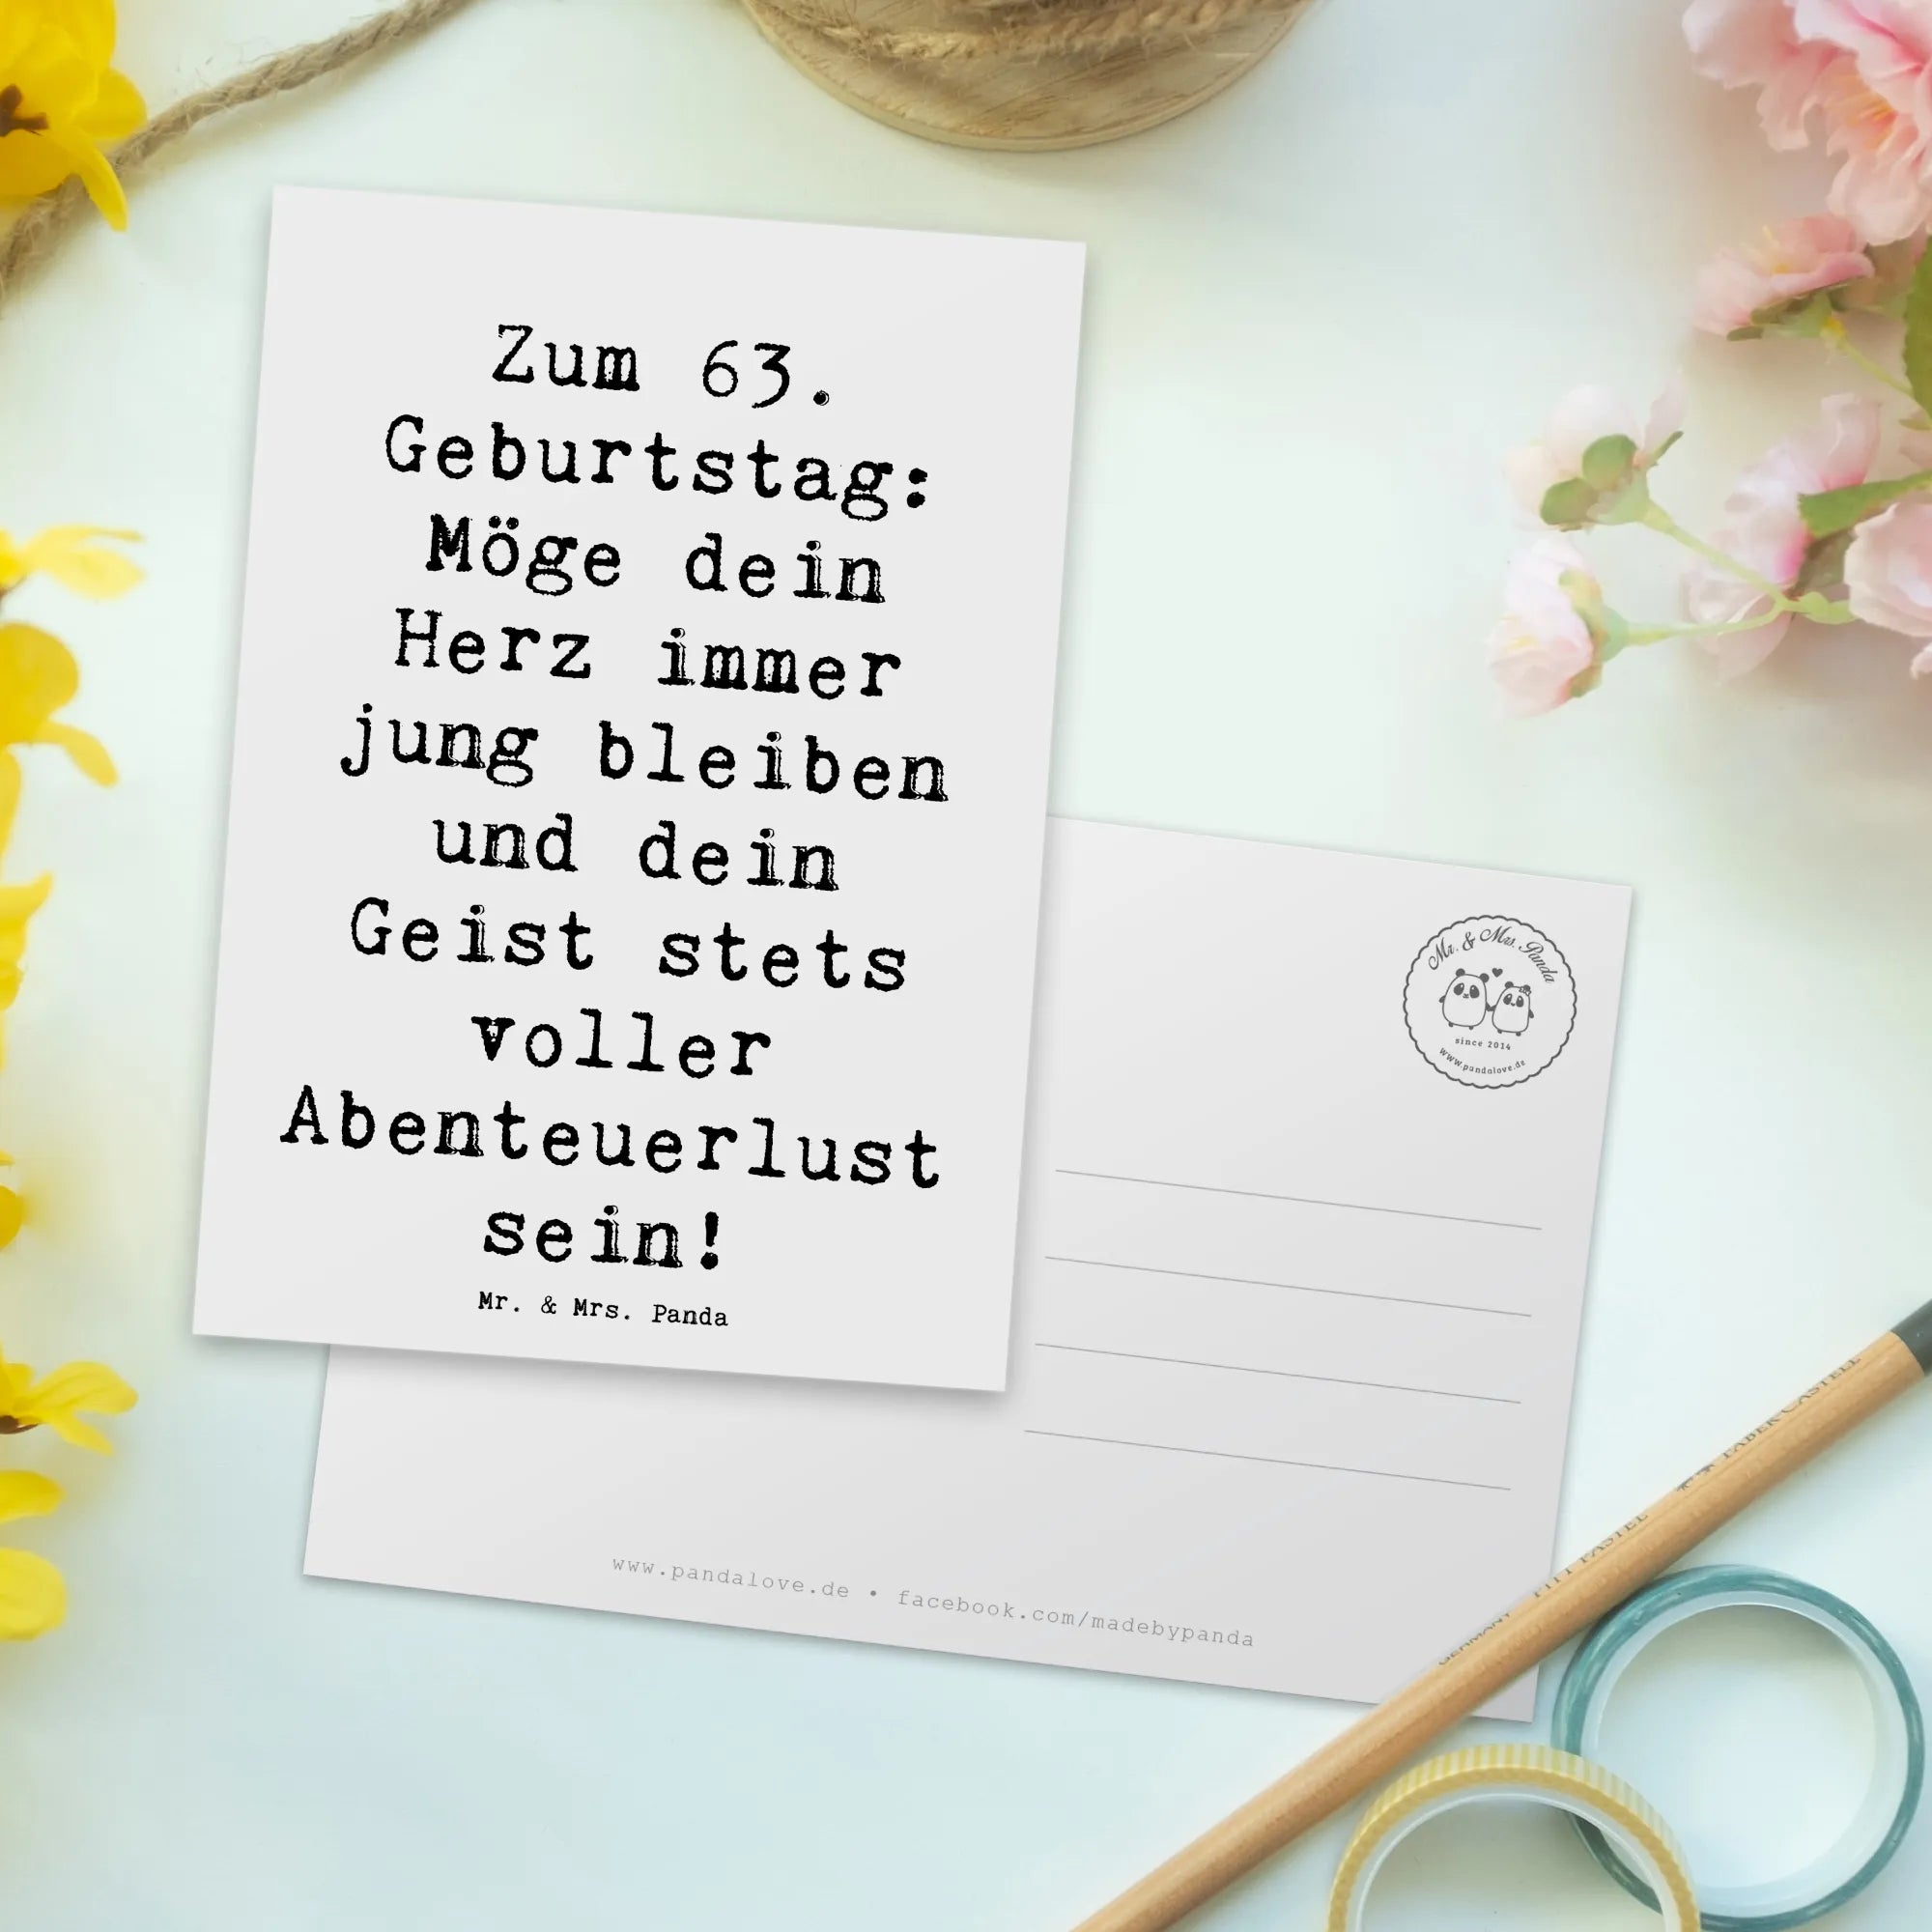 Zum 63.
Geburtstag:
Möge dein
Herz immer
jung bleiben
und dein
Geist stets
voller
Abenteuerlust
sein!
Mr. & Mrs. Panda
Mr. & Mrs. Panda
since 2014
www.pandalove.de
www.pandalove.de • facebook.com/madebypanda
FABER-CASTELL
PITT PASTEL
GERMANY